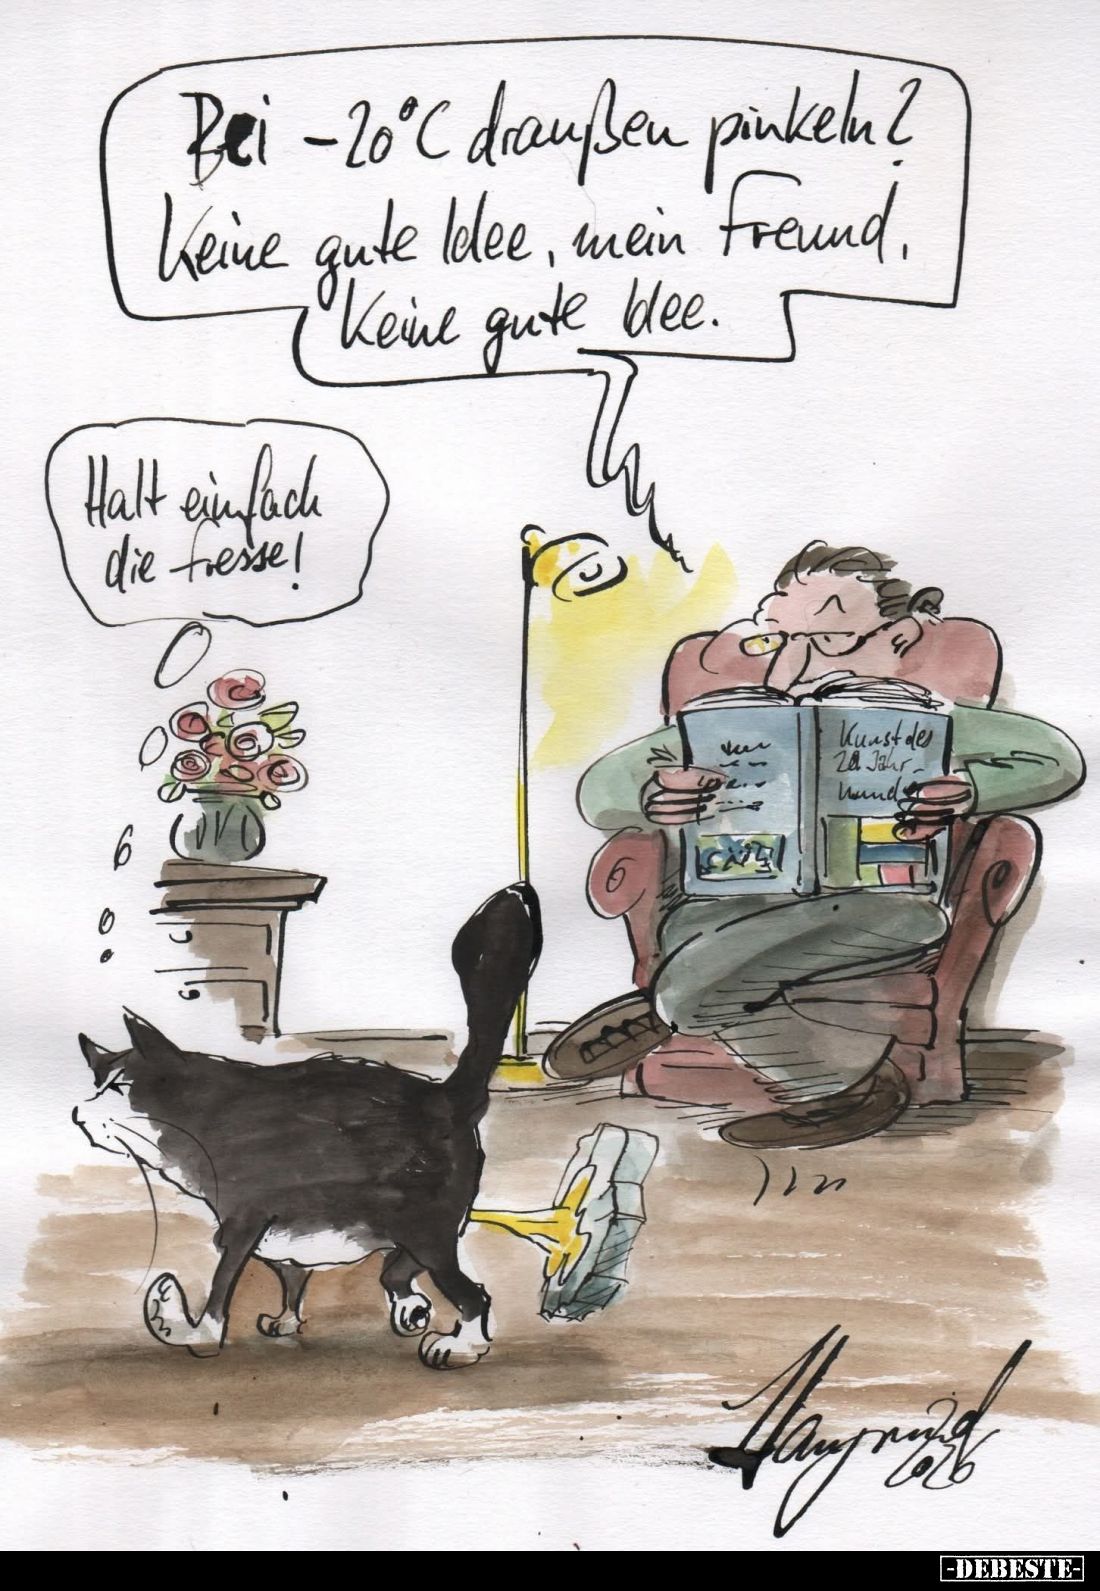 Bei -20°C draußen pinkeln?
Keine gute Idee, mein Freund,
Keine gute Idee.
Halt einfach
die Fresse!
Kunst des
20. Jahr-
hund
Haymond
2026
-DEBESTE-